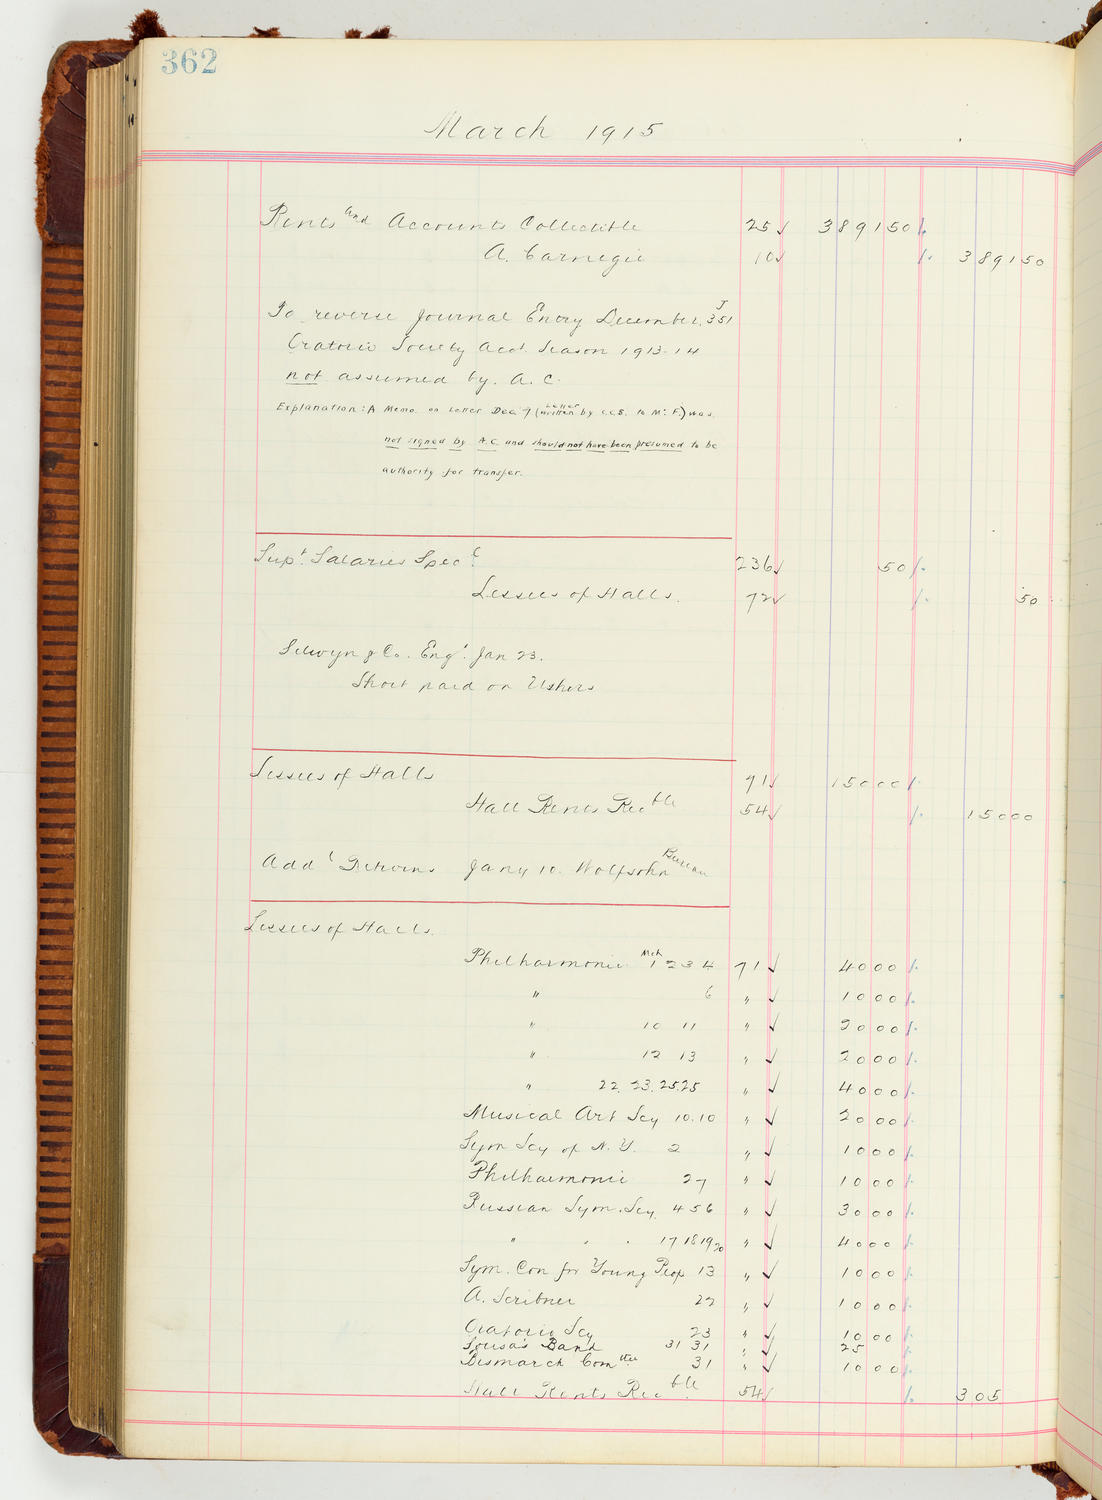 362
March 1915
Rents and Accounts Collectible 25 ✓ 3891 50
A. Carnegie 10 ✓ 3891 50
To reverse Journal Entry December, J 351
Oratorio Society Acct. Season 1913-14
not assumed by. A. C.
Explanation: A Memo. on Letter Dec 9 (Letter written by C.C.S. to Mr. F.) was
not signed by A.C. and should not have been presumed to be
authority for transfer.
Supt. Salaries Specl 236 ✓ 50
Lessees of Halls. 72 ✓ 50
Selwyn & Co. Engt. Jan 23.
Short paid on Ushers
Lessees of Halls 71 ✓ 150 00
Hall Rents Recble 54 ✓ 150 00
Addl Returns Jany 10. Wolfsohn Bureau
Lessees of Halls.
Philharmonic Mch 1 2 3 4 71 ✓ 40 00
" 6 " ✓ 10 00
" 10 11 " ✓ 20 00
" 12 13 " ✓ 20 00
" 22. 23. 25 25 " ✓ 40 00
Musical Art Scy 10. 10 " ✓ 20 00
Sym Scy of N. Y. 2 " ✓ 10 00
Philharmonic 27 " ✓ 10 00
Russian Sym. Scy. 4 5 6 " ✓ 30 00
" " " 17 18 19 20 " ✓ 40 00
Sym. Con for Young Peop 13 " ✓ 10 00
A. Scribner 22 " ✓ 10 00
Oratorio Scy 23 " ✓ 10 00
Sousa's Band 31 31 " ✓ 25
Bismarck Comttee 31 " ✓ 10 00
Hall Rents Recble 54 ✓ 305